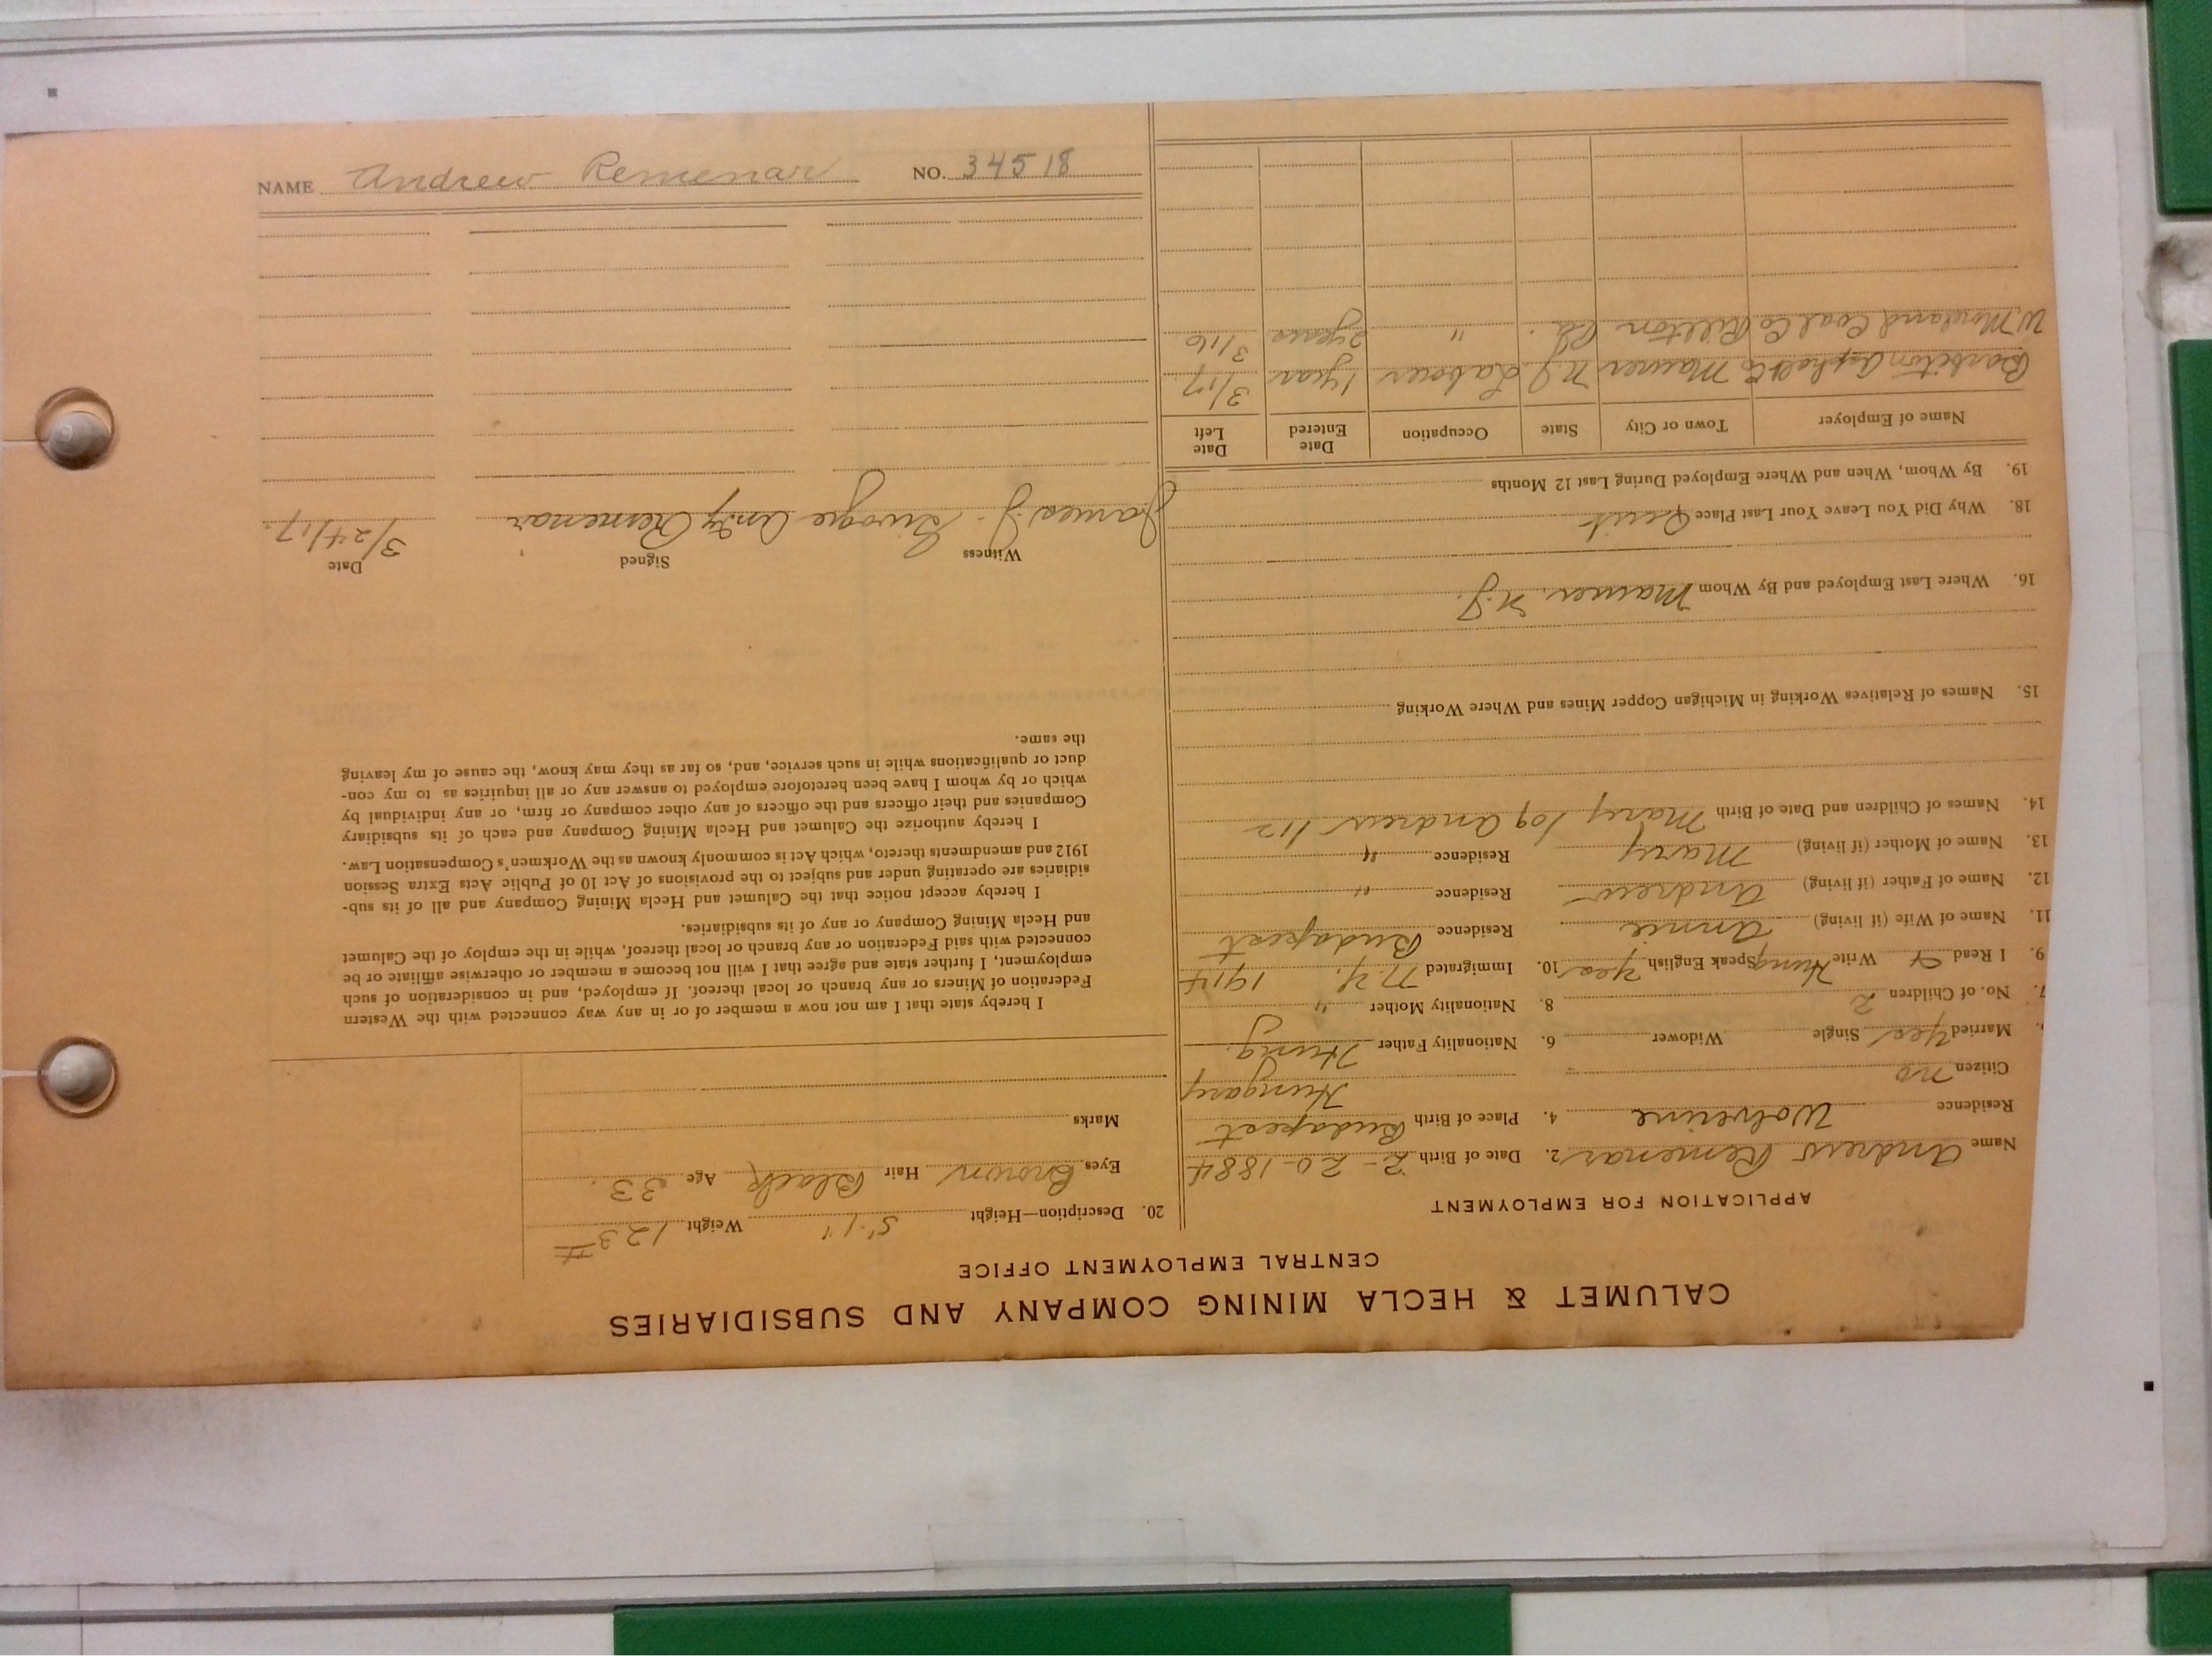 CALUMET & HECLA MINING COMPANY AND SUBSIDIARIES
CENTRAL EMPLOYMENT OFFICE
APPLICATION FOR EMPLOYMENT
Name Andrew Remenar 2. Date of Birth 2-20-1884
Residence Wolverine 4. Place of Birth Budapest
Citizen no Hungary
Married Yes Single Widower 6. Nationality Father Hung.
7. No. of Children 2 8. Nationality Mother "
9. I Read Write Hung Speak English Yes 10. Immigrated N.Y. 1914
11. Name of Wife (if living) Annie Residence Budapest
12. Name of Father (if living) Andrew Residence "
13. Name of Mother (if living) Mary Residence "
14. Names of Children and Date of Birth Mary 109 Andrew 112
15. Names of Relatives Working in Michigan Copper Mines and Where Working
16. Where Last Employed and By Whom Maurer, N.J.
18. Why Did You Leave Your Last Place Quit
19. By Whom, When and Where Employed During Last 12 Months
Name of Employer Town or City State Occupation Date Entered Date Left
Barbiton Asphalt Co Maurer N.J Laborer 1 year 3/17.
W. Moreland Coal Co Rillton Pa. " 2 years 3/16
20. Description—Height 5'.1" Weight 123#
Eyes Brown Hair Black Age 33.
Marks
I hereby state that I am not now a member of or in any way connected with the Western
Federation of Miners or any branch or local thereof. If employed, and in consideration of such
employment, I further state and agree that I will not become a member or otherwise affiliate or be
connected with said Federation or any branch or local thereof, while in the employ of the Calumet
and Hecla Mining Company or any of its subsidiaries.
I hereby accept notice that the Calumet and Hecla Mining Company and all of its sub-
sidiaries are operating under and subject to the provisions of Act 10 of Public Acts Extra Session
1912 and amendments thereto, which Act is commonly known as the Workmen's Compensation Law.
I hereby authorize the Calumet and Hecla Mining Company and each of its subsidiary
Companies and their officers and the officers of any other company or firm, or any individual by
which or by whom I have been heretofore employed to answer any or all inquiries as to my con-
duct or qualifications while in such service, and, so far as they may know, the cause of my leaving
the same.
Witness Signed Date
James J. Andy Remenar 3/24/17.
NAME Andrew Remenar NO. 34518